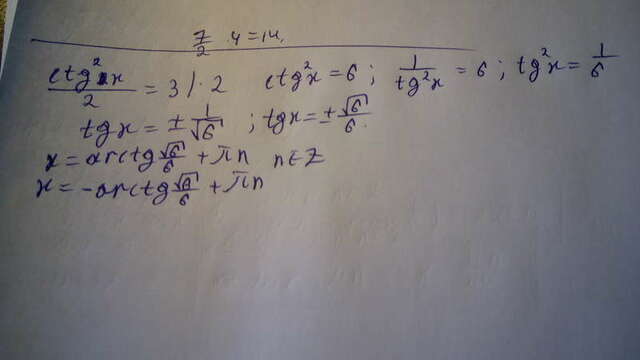 7/2 · 4 = 14.
ctg²x/2 = 3 | · 2 ctg²x = 6 ; 1/tg²x = 6 ; tg²x = 1/6
tgx = ± 1/√6 ; tgx = ± √6/6.
x = arctg √6/6 + πn n ∈ Z
x = -arctg √6/6 + πn